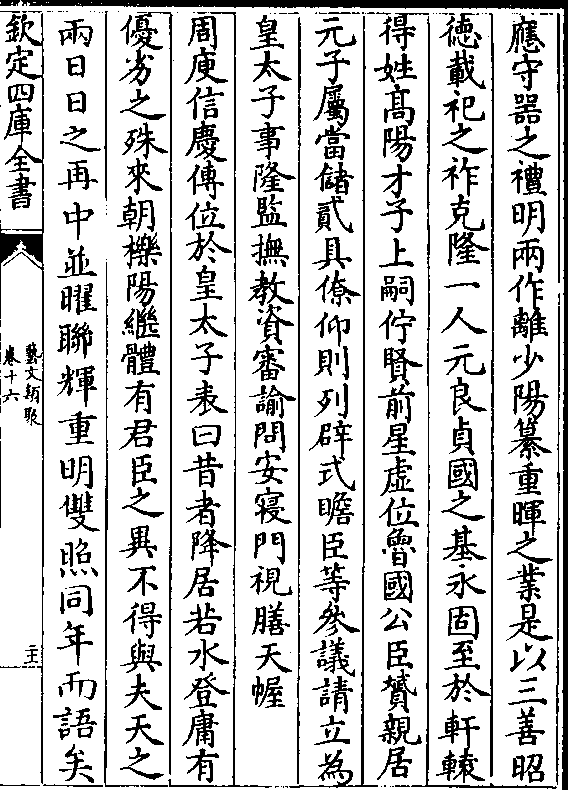 應守器之禮明兩作離少陽纂重暉之業是以三善昭
徳載祀之祚克隆一人元良貞國之基永固至於軒轅
得姓髙陽才子上嗣佇賢前星虛位魯國公臣贇親居
元子屬當儲貳具僚仰則列辟式瞻臣等參議請立為
皇太子事隆監撫教資審諭問安寝門視膳天幄
周庾信慶傳位於皇太子表曰昔者降居若水登庸有
優劣之殊來朝櫟陽繼體有君臣之異不得與夫天之
兩日日之再中並曜聯輝重明雙照同年而語矣
欽定四庫全書
藝文類聚
卷十六
二十